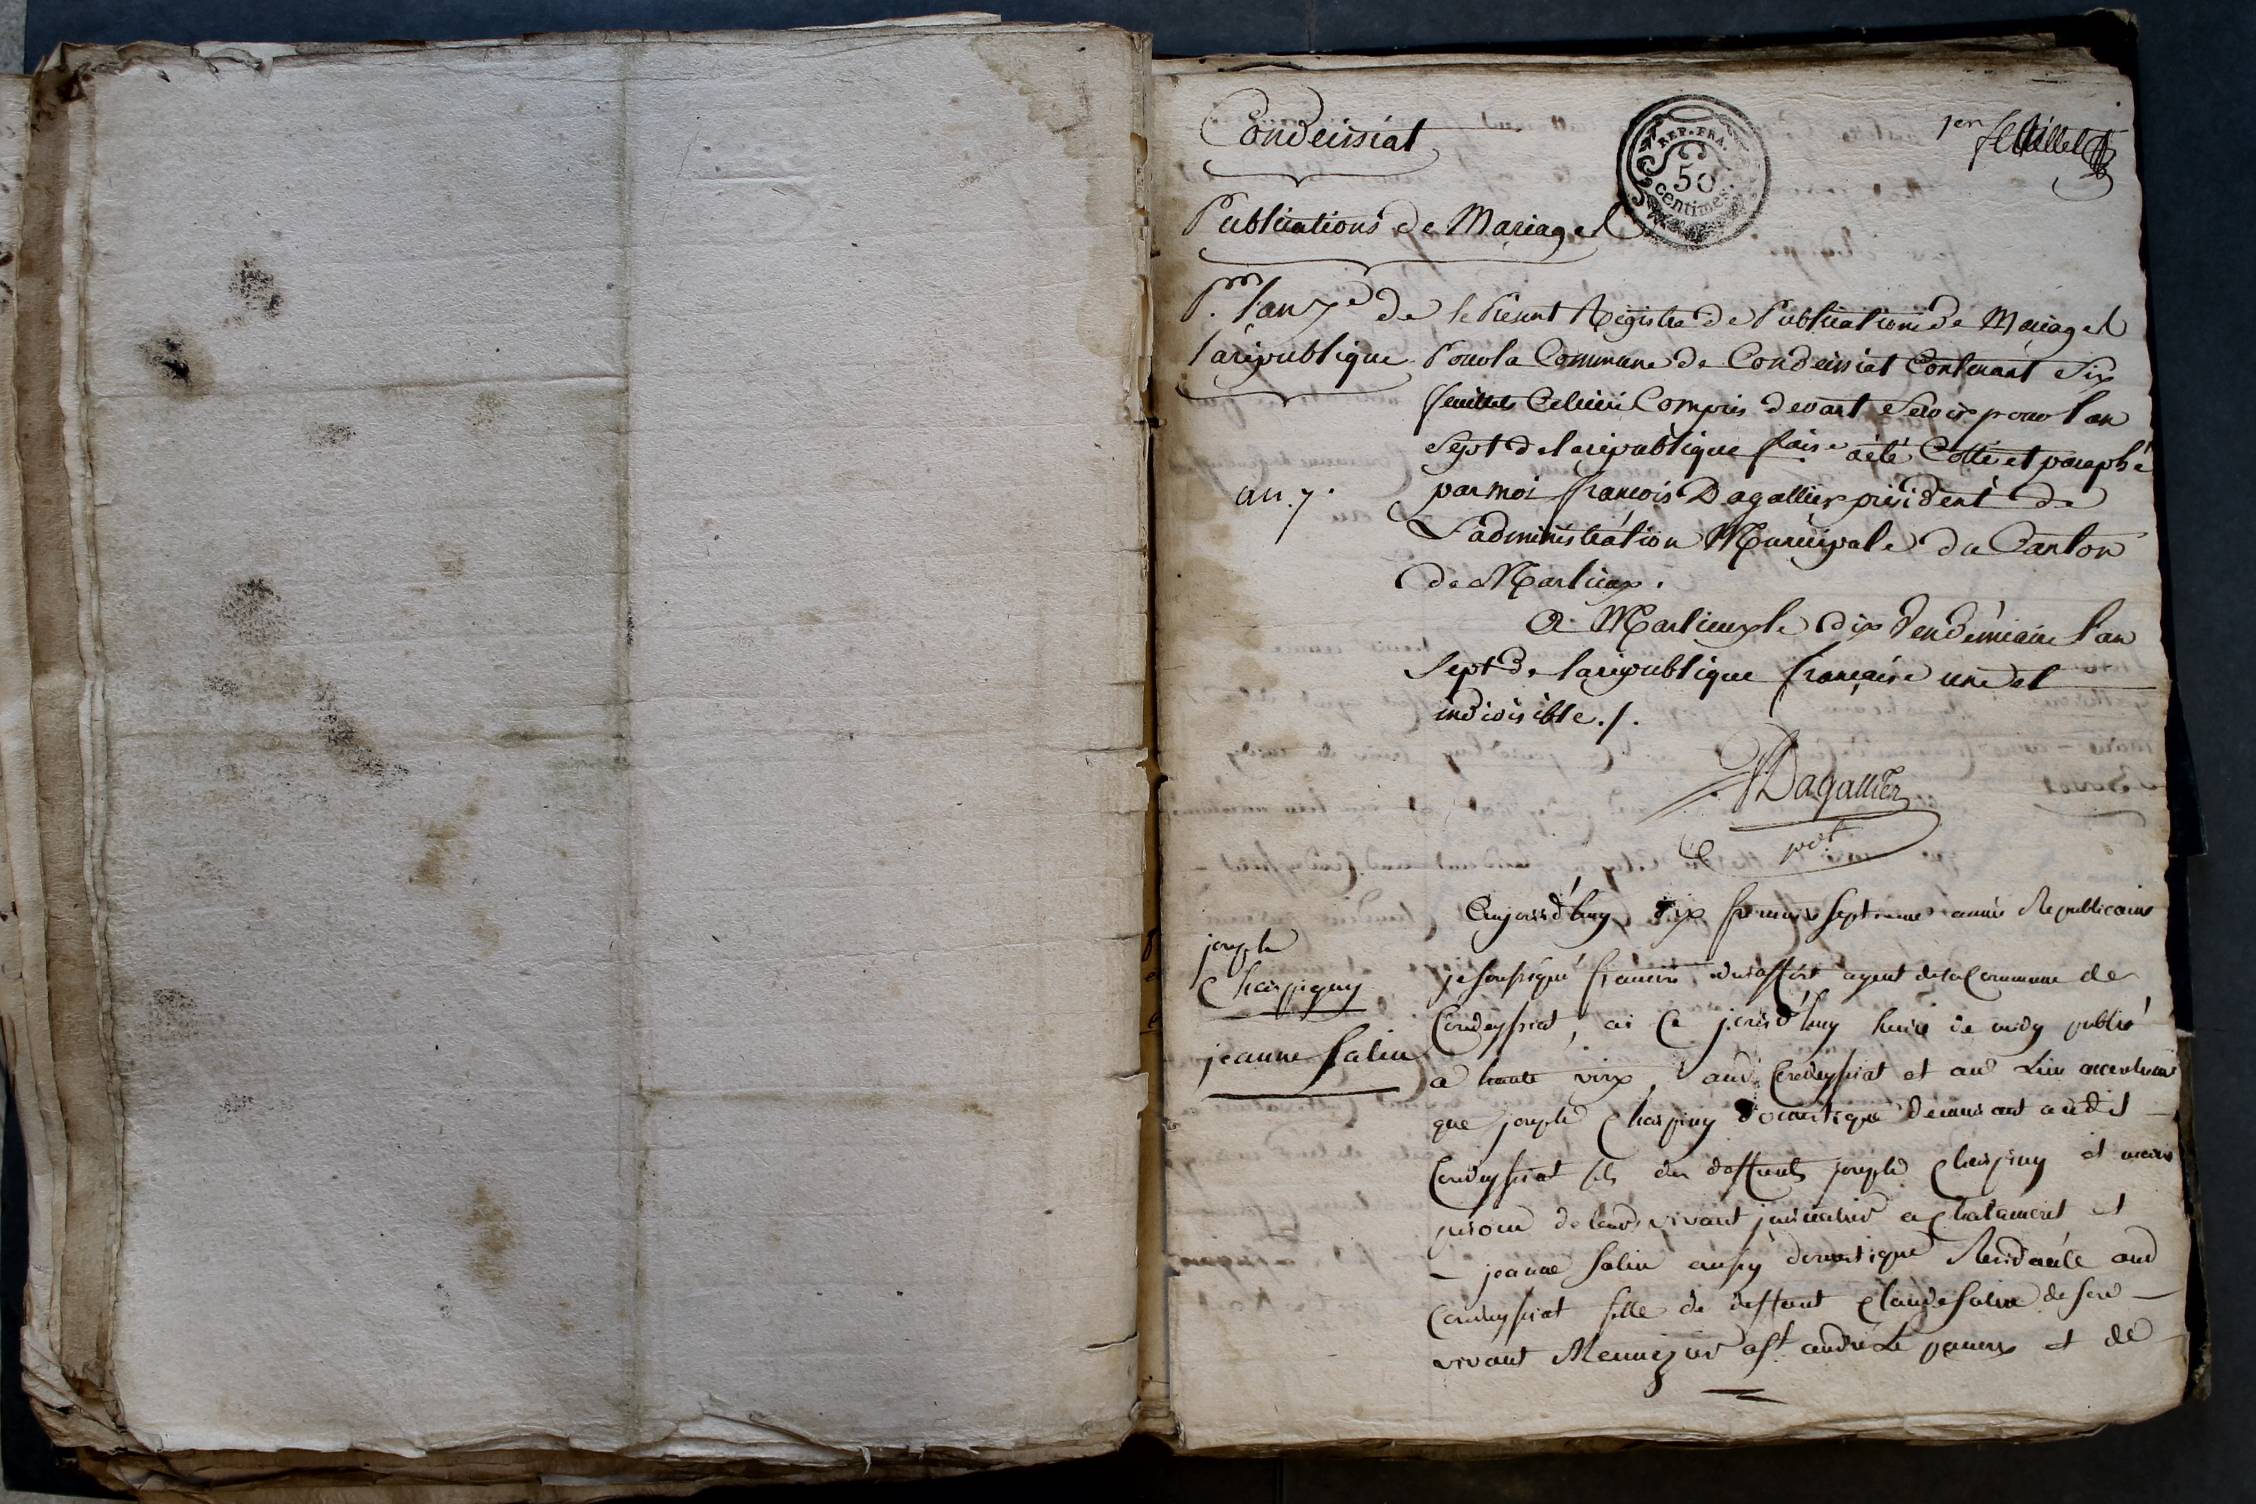 Condeissiat
REP. FRA.
50
centimes.
1er feuillet
Publications de Mariages
Pr. l'an 7e de
la république
an. 7.
le Présent Régistre de Publications de Mariages
Pour la Commune de Condeissiat Contenant Six
feuillets Celuici Compris devant Servir pour l'an
Sept de la république fraise a été Cotté et paraphé
par moi françois Dagallier président de
L'administration Municipale du Canton
de Marlieux.
A Marlieux le dix Vendémiaire l'an
Sept de la république française une et
indivisible ./.
Dagallier
pdt
joseph
Charpigny
jeanne Salin
Aujourd'huy dix frimaire septieme année Republicaine
je soussigné francois agent de la Commune de
Condeyssiat, ai ce jourd'huy heure de midy publié
a haute voix, aud. Condeyssiat et au Lieu accoutumé
que joseph Charpiny domestique demeurant audit
Condeyssiat fils du deffunt joseph Charpiny et marie
de leurs vivant a Chatameret et
jeanne Salin aussy domestique Residante aud
Condeyssiat fille de deffunt Claude Salin de son
vivant a St. andré Le panoux et de